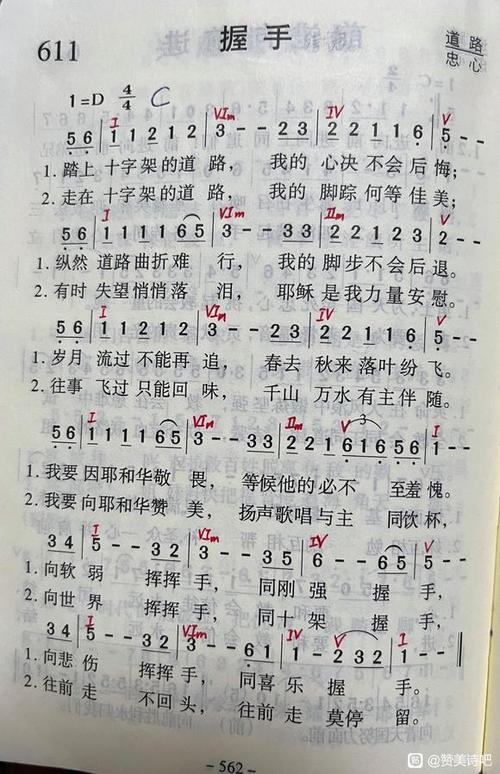 611
握手
道路
忠心
1=D 4/4 C
I VIm IV V
5 6 | 1 1 2 1 2 | 3 - - 2 3 | 2 2 1 1 6 | 5 - -
1.踏上 十字架的道 路， 我的 心决 不会后 悔；
2.走在 十字架的道 路， 我的 脚踪 何等佳 美；
I VIm IIm V
5 6 | 1 1 2 1 6 5 | 3 - - 2 3 | 2 2 2 1 2 3 | 2 - -
1.纵然 道路曲折难 行， 我的 脚步不会后 退。
2.有时 失望悄悄落 泪， 耶稣 是我力量安 慰。
I VIm IIm V
1.岁月 流过不能再 追， 春去 秋来落叶纷 飞。
2.往事 飞过只能回 味， 千山 万水有主伴 随。
I VIm IIm V I
1.我要 因耶和华敬 畏， 等候他的必不 至羞 愧。
2.我要 向耶和华赞 美， 扬声歌唱与主 同饮 杯，
I VIm IV V
3 4 | 5 - - 1 2 | 3 - - 3 4 | 5 - - 6 5 | 5 - -
1.向软 弱 挥挥 手， 同刚 强 握 手，
2.向世 界 挥挥 手， 同十 架 握 手，
I VIm IV V I
1.向悲 伤 挥挥 手， 同喜 乐 握 手。
2.往前 走 不回 头， 往前 走 莫停 留。
· 562 ·
@赞美诗吧